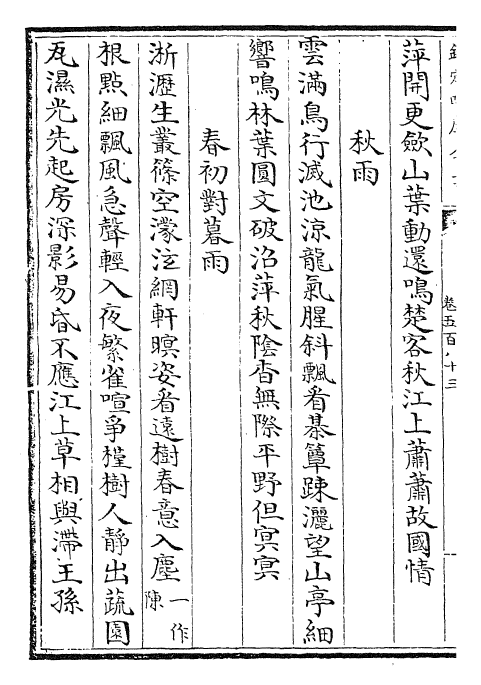 卷五百八十三
萍開更斂山葉動還鳴楚客秋江上蕭蕭故國情
秋雨
雲滿鳥行滅池涼龍氣腥斜飄看棊簟踈灑望山亭細
響鳴林葉圓文破沼萍秋陰杳無際平野但㝠㝠
春初對暮雨
淅瀝生叢篠空濛泫網軒暝姿看遠樹春意入塵一作陳
根點細飄風急聲輕入夜繁雀喧争槿樹人靜出蔬園
瓦濕光先起房深影易昏不應江上草相與滯王孫